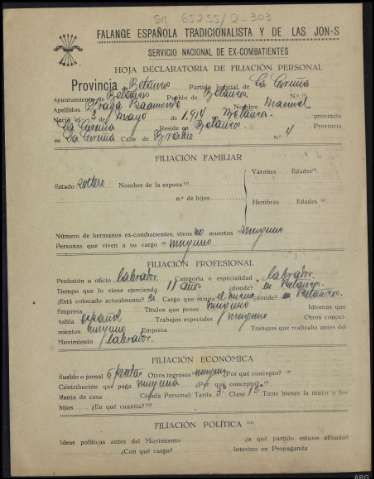 FALANGE ESPAÑOLA TRADICIONALISTA Y DE LAS JON-S
SERVICIO NACIONAL DE EX-COMBATIENTES
HOJA DECLARATORIA DE FILIACIÓN PERSONAL
Provincia Betanzos Partido Judicial de La Coruña
Ayuntamiento de Betanzos Pueblo de Betanzos N.º
Apellidos Nombre Manuel
Nació el 3 Mayo de 1.914 Betanzos Provincia
La Coruña Reside en Betanzos Provincia
La Coruña Calle de N.º 4
FILIACIÓN FAMILIAR
Estado soltero Nombres de la esposa
n.º de hijos
Varones Edades
Hembras Edades
Número de hermanos ex-combatientes, vivos no muertos ninguno
Personas que viven a su cargo ninguno
FILIACIÓN PROFESIONAL
Profesión u oficio labrador Categoría o especialidad labrador
Tiempo que lo viene ejerciendo 11 años ¿dónde? en Betanzos.
¿Está colocado actualmente? Si Cargo que ocupa el mismo ¿dónde? en Betanzos.
Empresa Títulos que posee ninguno Idiomas que
habla español Trabajos especiales ninguno Otros conoci-
mientos ninguno Empresa Trabajos que realizaba antes del
Movimiento labrador.
FILIACIÓN ECONÓMICA
Sueldo o jornal 5 pesetas Otros ingresos ninguno ¿Por qué concepto?
Contribución que paga ninguna ¿por qué concepto?
Renta de casa Cédula Personal: Tarifa 3ª Clase 13ª Tiene bienes la mujer o los
hijos ¿En qué cuantía?
FILIACIÓN POLÍTICA
Ideas políticas antes del Movimiento ¿a qué partido estuvo afiliado?
¿Con qué cargo? Intervino en Propaganda